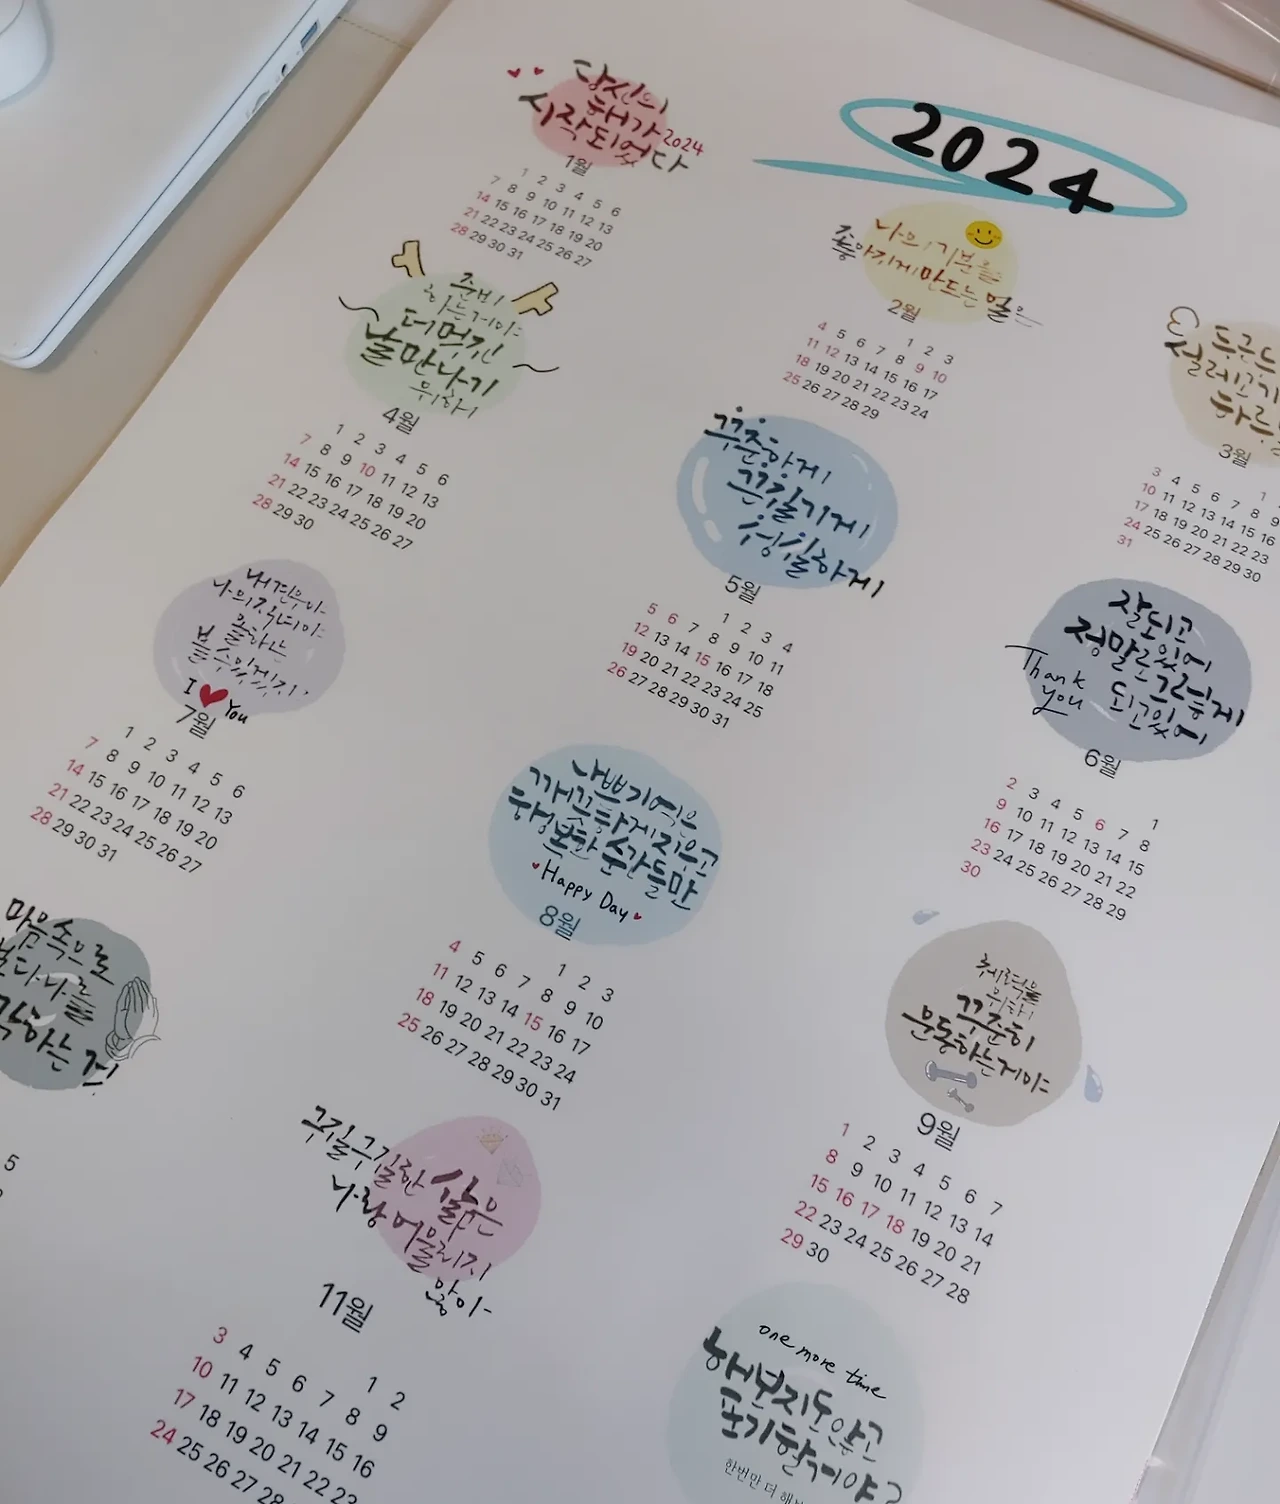 당신의
해가 2024
시작되었다
1월
1 2 3 4 5 6
7 8 9 10 11 12 13
14 15 16 17 18 19 20
21 22 23 24 25 26 27
28 29 30 31
2024
나의 기분을
좋아지게 만드는 일은
2월
1 2 3
4 5 6 7 8 9 10
11 12 13 14 15 16 17
18 19 20 21 22 23 24
25 26 27 28 29
설레고
3월
1
3 4 5 6 7 8 9
10 11 12 13 14 15 16
17 18 19 20 21 22 23
24 25 26 27 28 29 30
31
준비
하는거야
더 멋진
날 만나기
위하
4월
1 2 3 4 5 6
7 8 9 10 11 12 13
14 15 16 17 18 19 20
21 22 23 24 25 26 27
28 29 30
꾸준하게
끈질기게
성실하게
5월
1 2 3 4
5 6 7 8 9 10 11
12 13 14 15 16 17 18
19 20 21 22 23 24 25
26 27 28 29 30 31
잘되고
정말로 있어
Thank 그렇게
you 되고있어
6월
1
2 3 4 5 6 7 8
9 10 11 12 13 14 15
16 17 18 19 20 21 22
23 24 25 26 27 28 29
30
나의
볼 수 있게 지
I You
7월
1 2 3 4 5 6
7 8 9 10 11 12 13
14 15 16 17 18 19 20
21 22 23 24 25 26 27
28 29 30 31
나쁜기억은
깨끗하게지우고
행복한 순간들만
Happy Day
8월
1 2 3
4 5 6 7 8 9 10
11 12 13 14 15 16 17
18 19 20 21 22 23 24
25 26 27 28 29 30 31
체력을
위하
꾸준히
운동하는거야
9월
1 2 3 4 5 6 7
8 9 10 11 12 13 14
15 16 17 18 19 20 21
22 23 24 25 26 27 28
29 30
마음속으로
하는 것!
5
구질구질한 삶은
나랑 어울리지
않아
11월
1 2
3 4 5 6 7 8 9
10 11 12 13 14 15 16
17 18 19 20 21 22 23
24 25 26 27 28
one more time
해보지도않고
포기할거야?
한번만 더 해